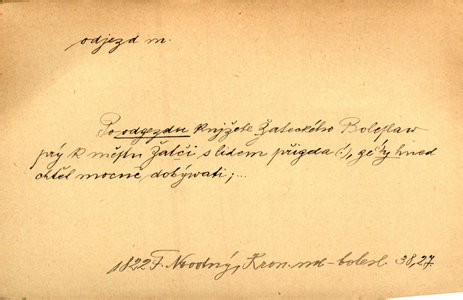 odjezd m.
Po odgezdu knjžete Žateckého Bolesław
prý k městu Žatči, s lidem přigda (!), ge hned
chtěl mocně dobýwati; ...
1822 F. Nowotný, Kron. ml-bolesl. 38, 27.